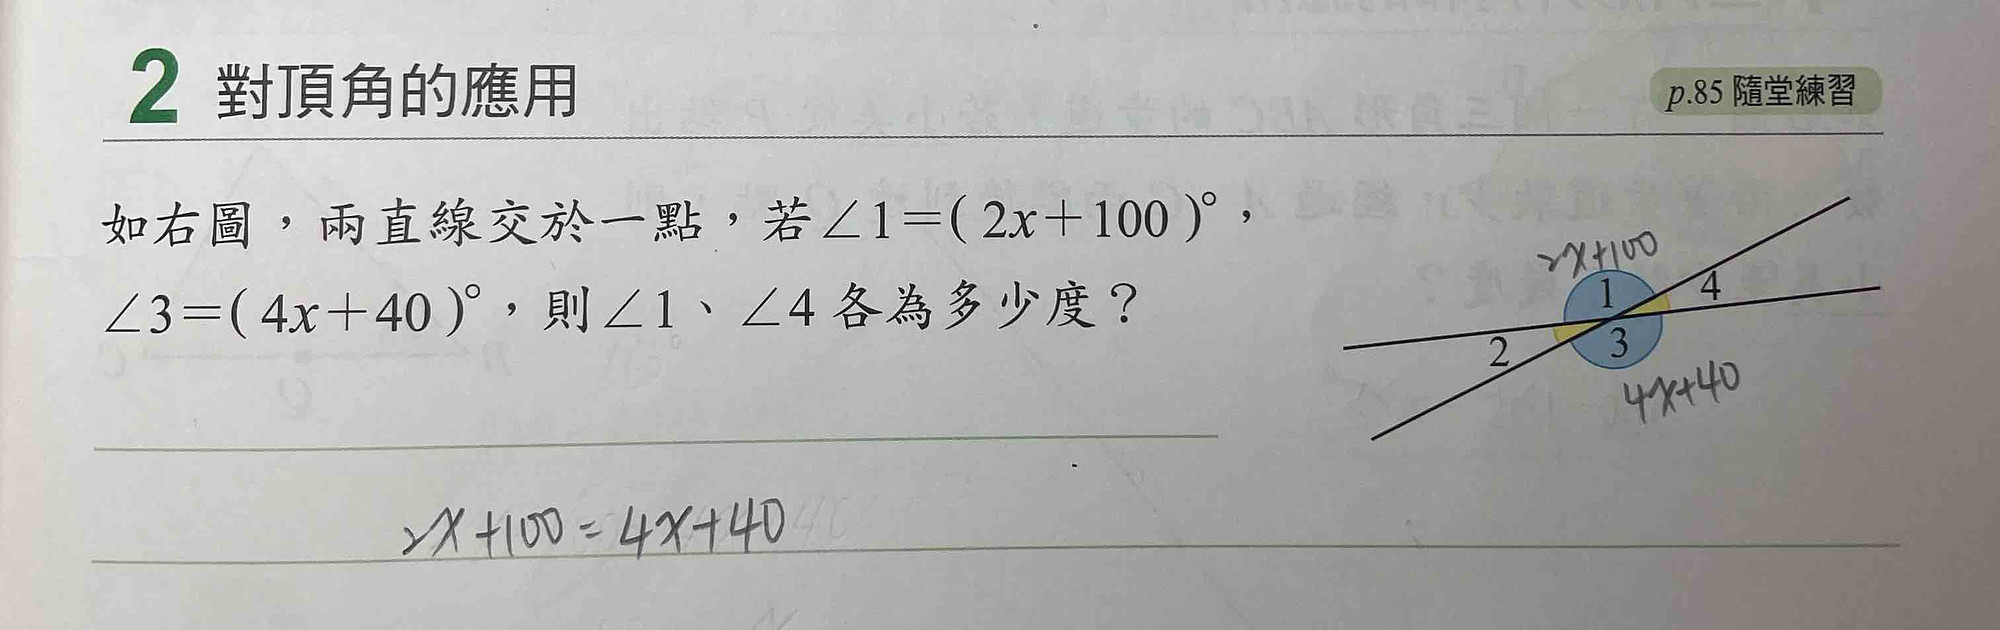 2 對頂角的應用
p.85 隨堂練習
如右圖，兩直線交於一點，若∠1＝( 2x＋100 )°，
∠3＝( 4x＋40 )°，則∠1、∠4 各為多少度？
2x+100
1
4
2
3
4x+40
2x+100=4x+40